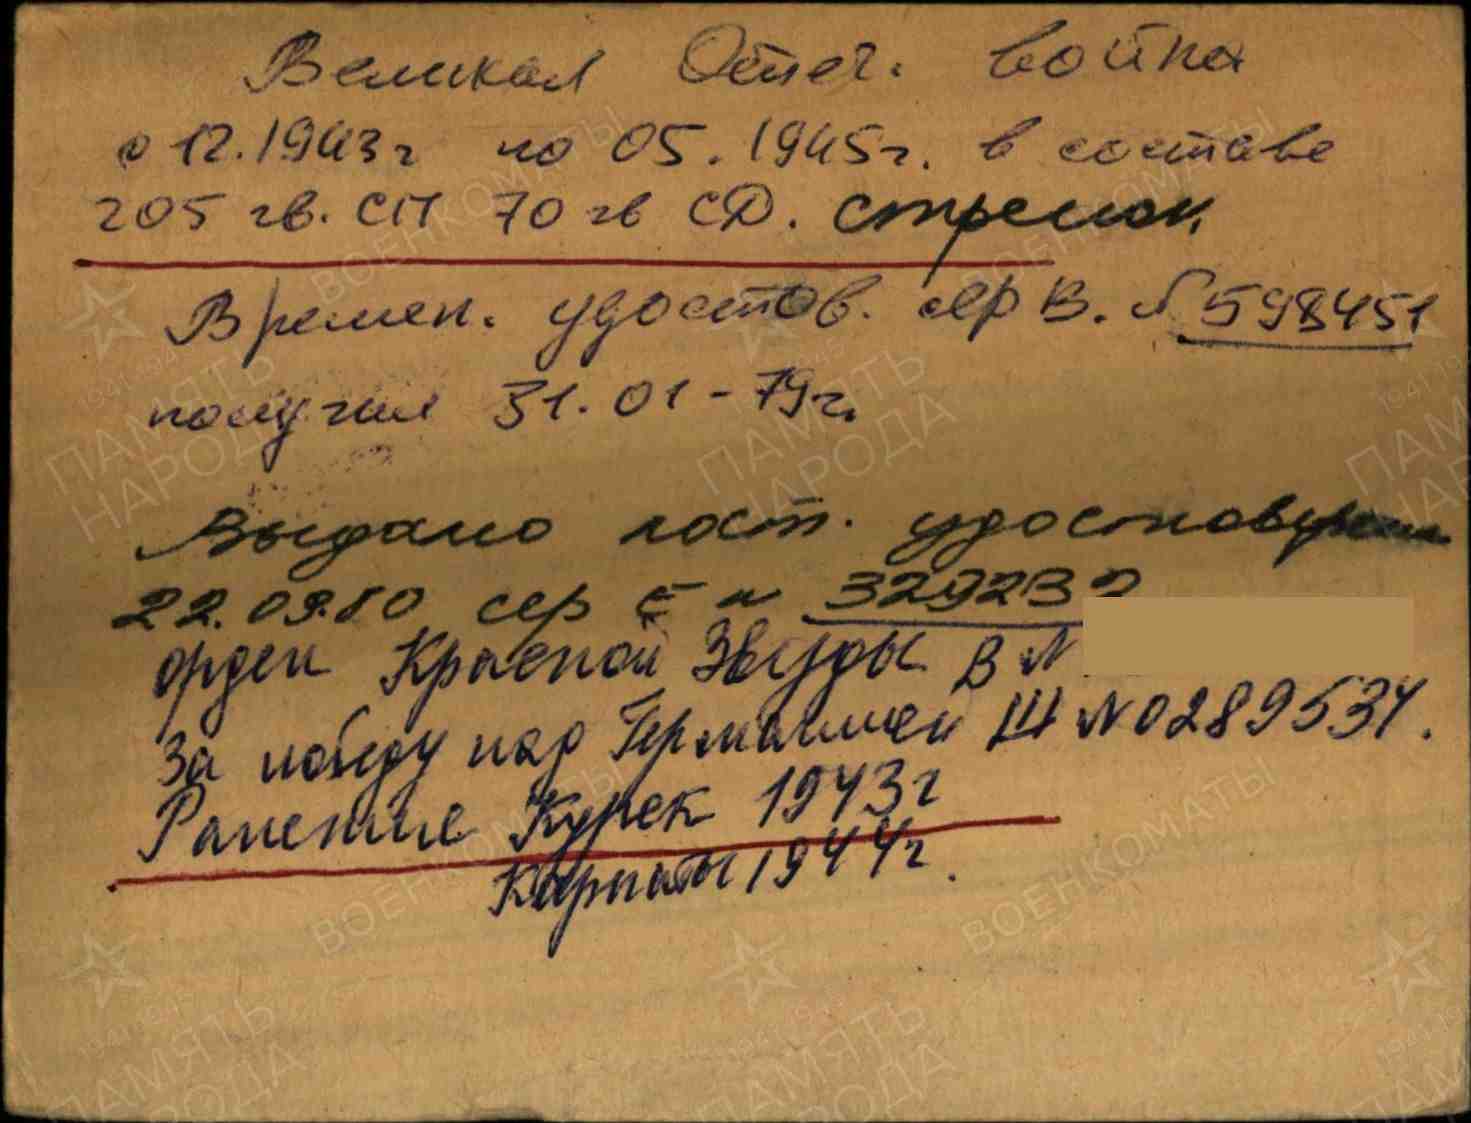 Великая Отеч. война
с 12.1943г по 05.1945г. в составе
205 гв. СП 70 гв СД. стрелок
Времен. удостов. сер В. № 598451
получил 31.01-79г.
Выдано пост. удостоверен
22.09.80 сер Е № 329232
орден Красной Звезды В №
За победу над Германией Ш № 0289534.
Ранение Курск 1943г
Карпаты 1944г.
ВОЕНКОМАТЫ
1941-1945
ПАМЯТЬ
НАРОДА